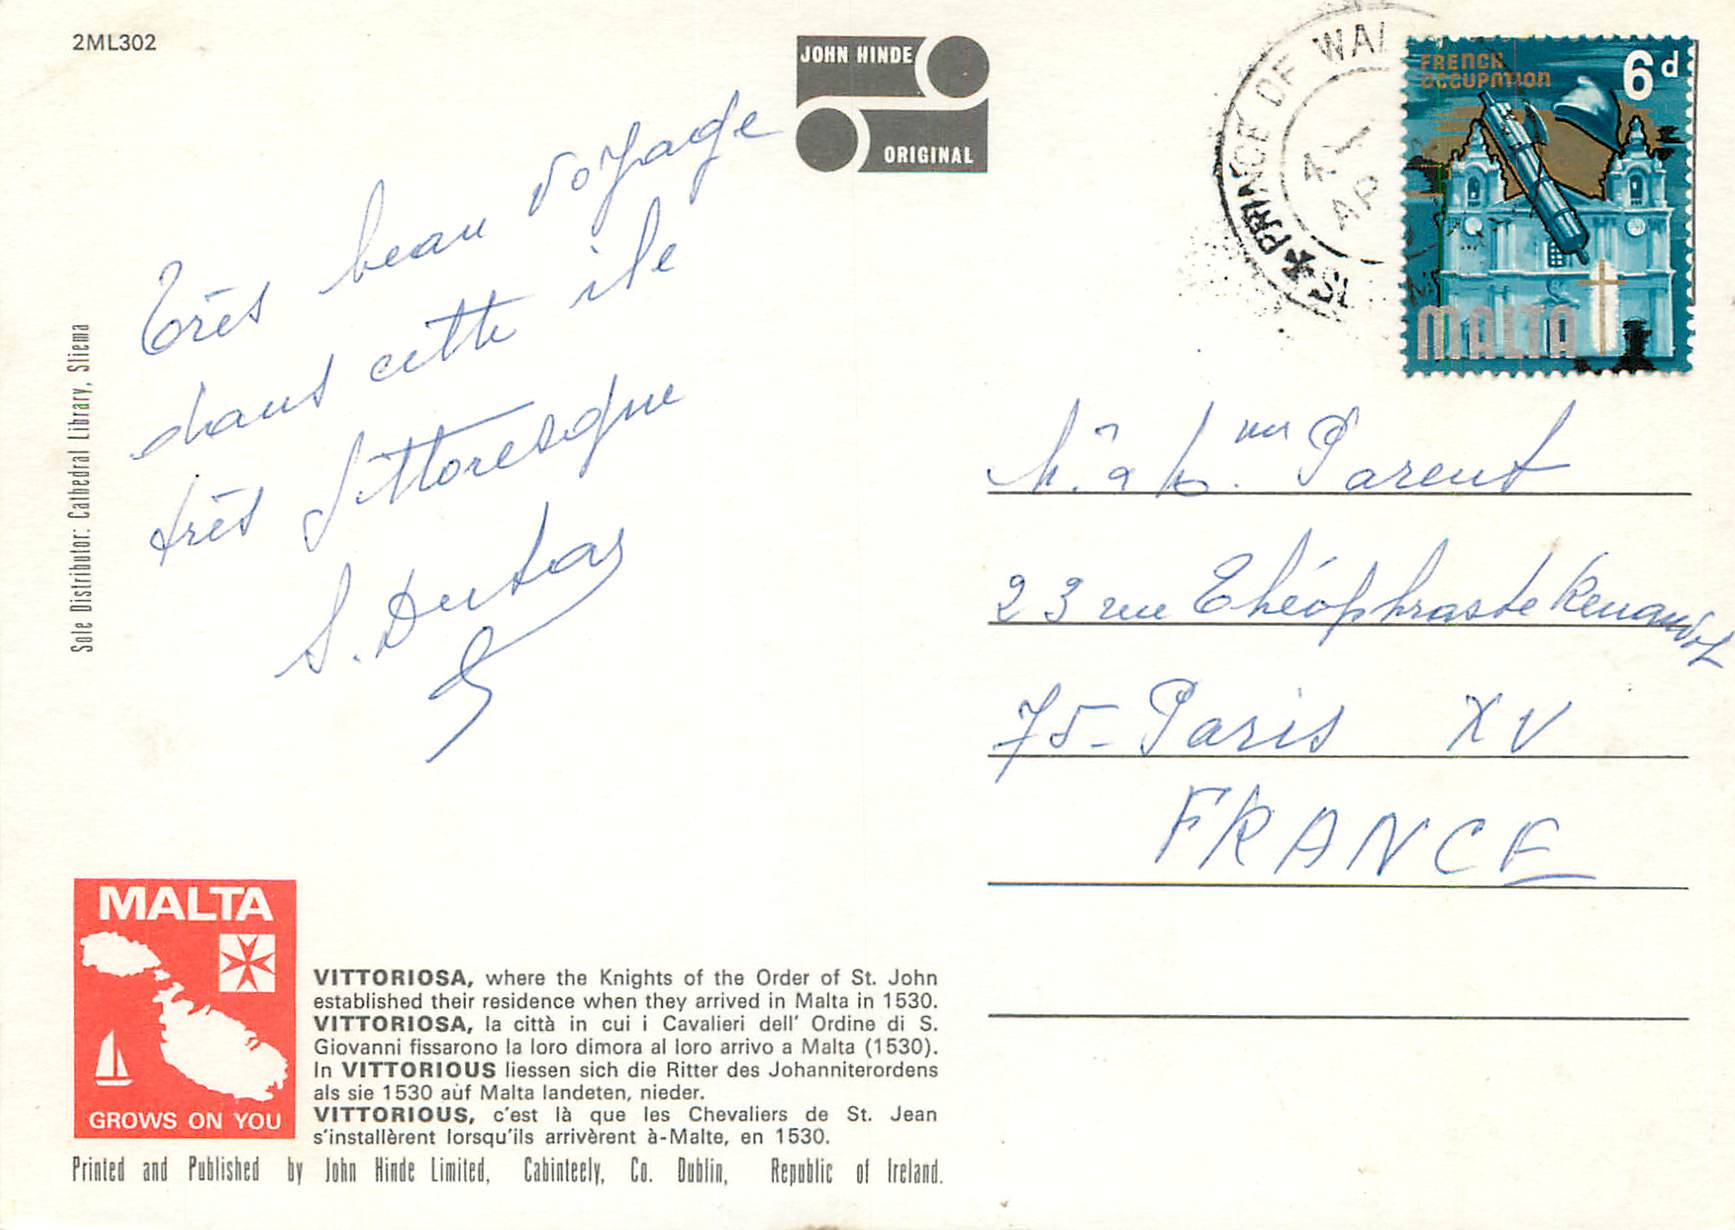 2ML302
JOHN HINDE
ORIGINAL
PRINCE OF WAL
AP
FRENCH
OCCUPATION
6d
MALTA
Très beau voyage
dans cette ile
très pittoresque
S. Dutas
M. & Mme Parent
23 rue Théophraste Renaudot
75 - Paris XV
FRANCE
Sole Distributor: Cathedral Library, Sliema
MALTA
GROWS ON YOU
VITTORIOSA, where the Knights of the Order of St. John
established their residence when they arrived in Malta in 1530.
VITTORIOSA, la città in cui i Cavalieri dell' Ordine di S.
Giovanni fissarono la loro dimora al loro arrivo a Malta (1530).
In VITTORIOUS liessen sich die Ritter des Johanniterordens
als sie 1530 aúf Malta landeten, nieder.
VITTORIOUS, c'est là que les Chevaliers de St. Jean
s'installèrent lorsqu'ils arrivèrent à-Malte, en 1530.
Printed and Published by John Hinde Limited, Cabinteely, Co. Dublin, Republic of Ireland.